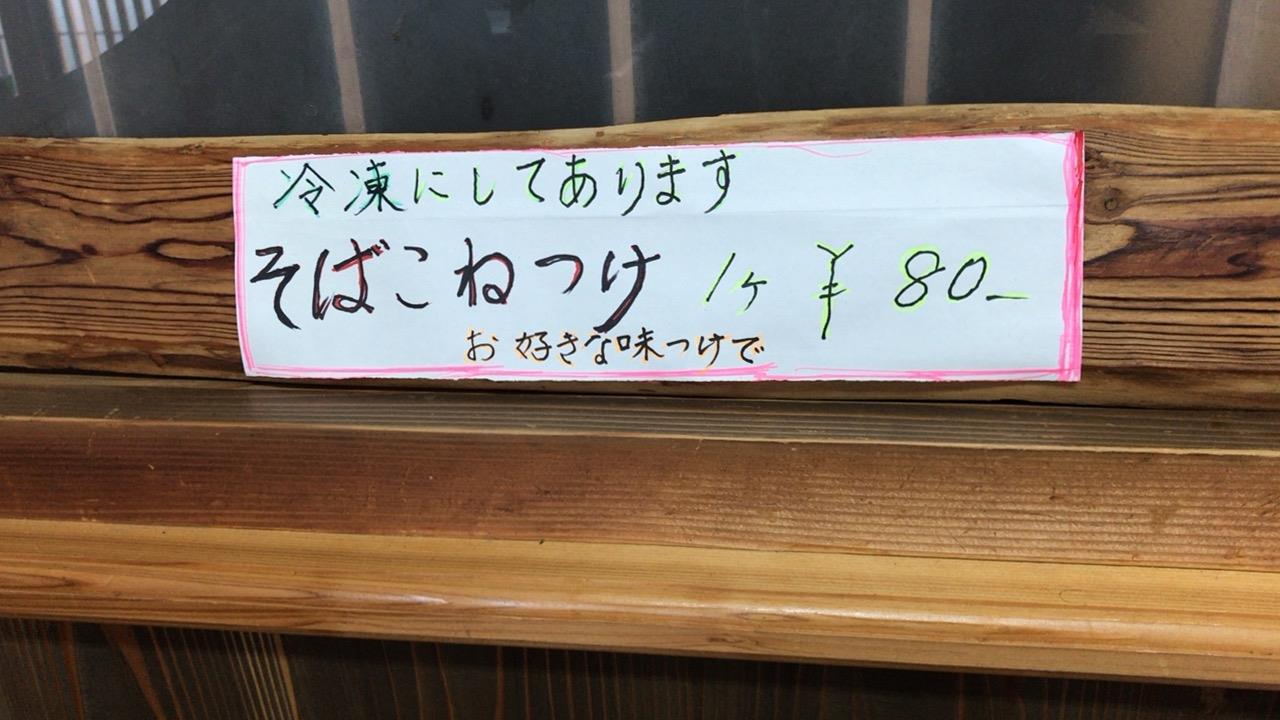 冷凍にしてあります
そばこねつけ 1ヶ ¥80-
お好きな味つけで